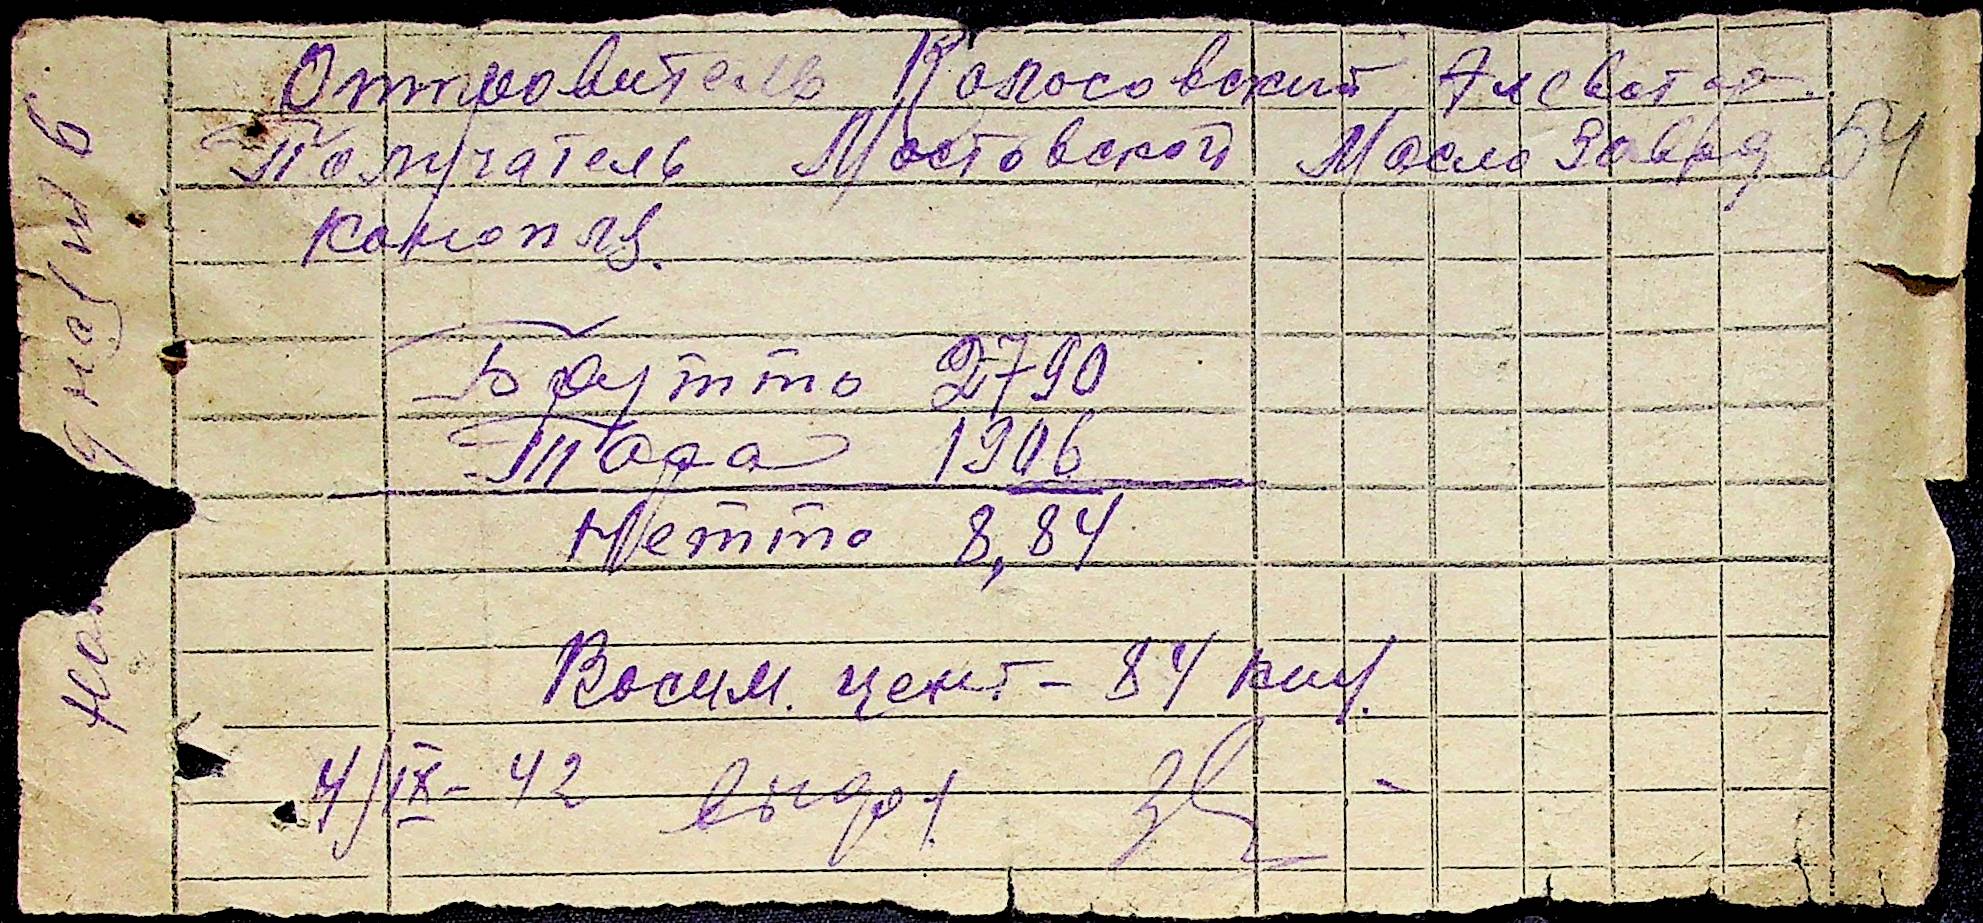 Отправитель Колосовский Элеватор.
Получатель Мостовской МаслоЗавод 54
Конопля.
Брутто 2790
Тара 1906
Нетто 8,84
Восим. цент - 84 кил.
4/IX - 42 выдал